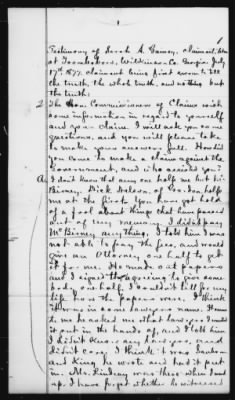 1
Testimony of Sarah A. Gainey, Claimant, taken
at Toomsboro, Wilkinson Co. Georgia July
17th, 1877. Claimant being first sworn to tell
the truth, the whole truth, and nothing but
the truth:
The Hon. Commissioner of Claims wish
some information in regard to yourself
and your claim. I will ask you some
questions, and you will please to be
to make your answers full. How did
you come to make a claim against the
Government, and who assisted you?
I don't know that any one helped me but
Birney. Dick Nelson, of Gordon helped
me at the first. You have got hold
of a fool about things that have passed
out of my memory. I did not pay
Mr Birney any thing. I told him I was
not able to pay the fees, and would
give an Attorney one half to get
it for me. He made out papers
and I signed them agreeing to give some
body one half. I couldn't tell for my
life how the papers were. I think
it was in some lawyers name. Seems
to me he asked me what lawyer I would
it put in the hands of, and I told him
I didn't know any lawyer, and
didn't care. I think it was
and King he wrote and has it put
in. Mr. Lindsay was there when I went
up. I have forgot whether he witnessed